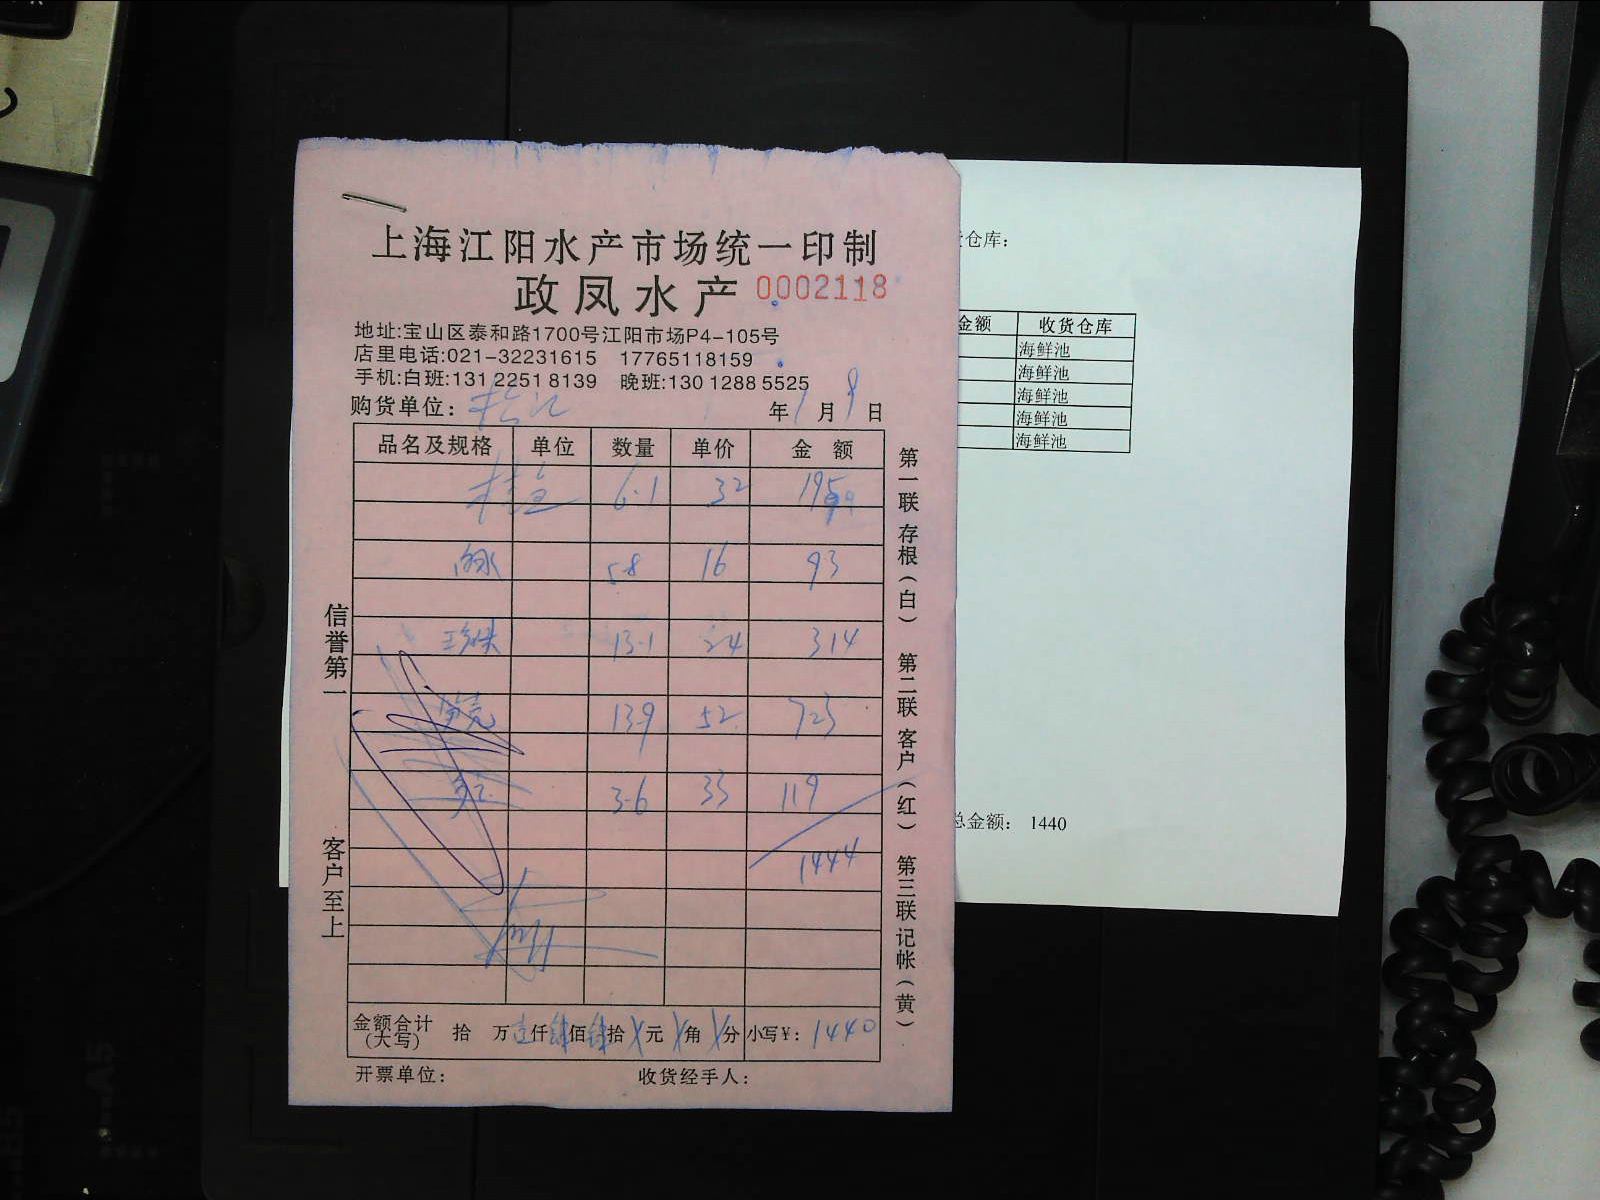 上海江阳水产市场统一印制
政凤水产 0002118
地址:宝山区泰和路1700号江阳市场P4-105号
店里电话:021-32231615 17765118159
手机:白班:131 2251 8139 晚班:130 1288 5525
购货单位: 年 月 日
品名及规格 单位 数量 单价 金额
6.1 32 195
5.8 16 93
13.1 24 314
13.9 52 723
3.6 33 119
1444
金额合计(大写) 拾 万 仟 佰 拾 元 角 分 小写¥: 1440
开票单位: 收货经手人:
信誉第一
客户至上
第一联 存根(白) 第二联 客户(红) 第三联 记帐(黄)
仓库:
金额 收货仓库
海鲜池
海鲜池
海鲜池
海鲜池
海鲜池
总金额: 1440